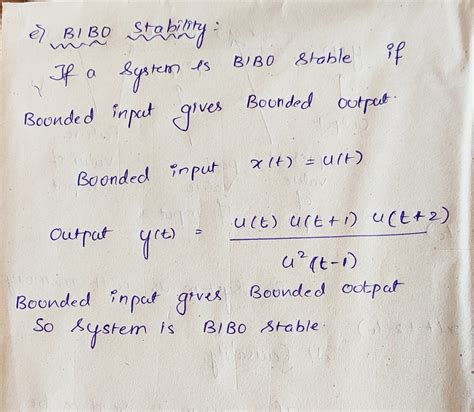 e) BIBO Stability:
If a System is BIBO Stable if
Bounded input gives Bounded output.
Bounded input x(t) = u(t)
Output y(t) = u(t) u(t+1) u(t+2)
u²(t-1)
Bounded input gives Bounded output
So System is BIBO Stable.